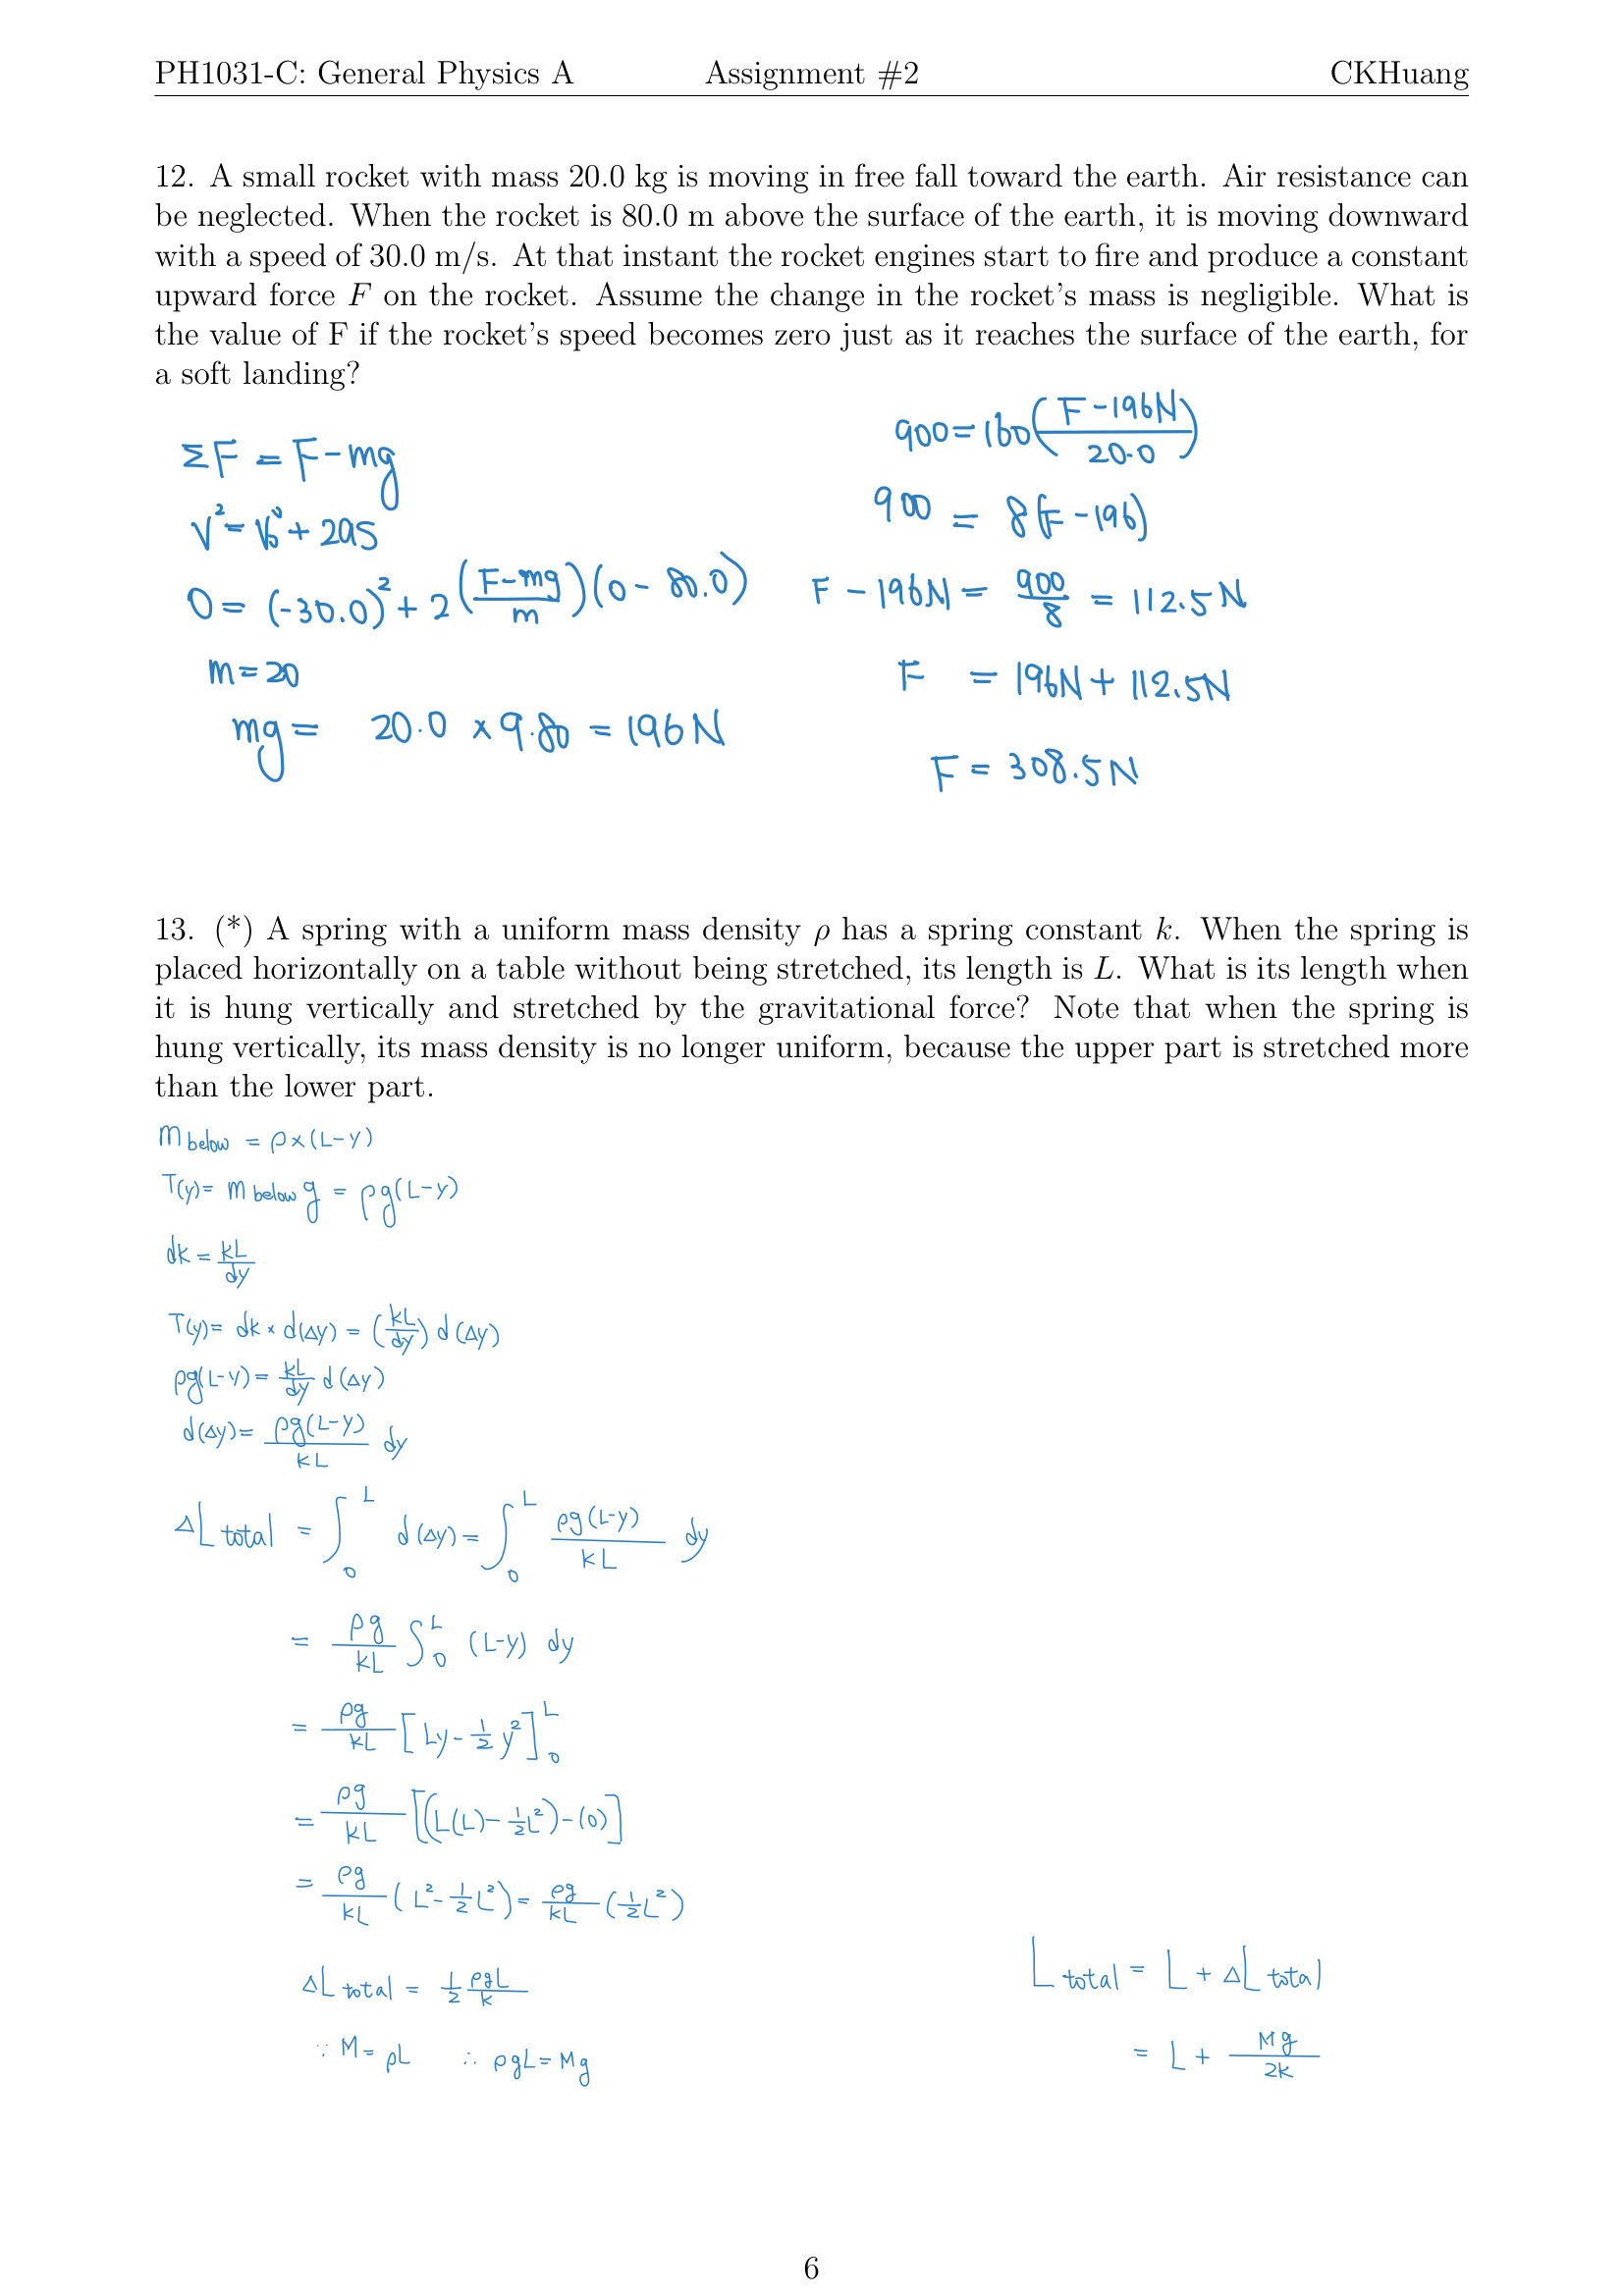 PH1031-C: General Physics A Assignment #2 CKHuang
12. A small rocket with mass 20.0 kg is moving in free fall toward the earth. Air resistance can
be neglected. When the rocket is 80.0 m above the surface of the earth, it is moving downward
with a speed of 30.0 m/s. At that instant the rocket engines start to fire and produce a constant
upward force F on the rocket. Assume the change in the rocket's mass is negligible. What is
the value of F if the rocket's speed becomes zero just as it reaches the surface of the earth, for
a soft landing?
ΣF = F-mg
V²= V₀²+ 2as
0 = (-30.0)² + 2((F-mg)/m)(0 - 80.0)
m=20
mg = 20.0 × 9.80 = 196N
900=160((F-196N)/20.0)
900 = 8(F-196)
F - 196N = 900/8 = 112.5N
F = 196N + 112.5N
F = 308.5N
13. (*) A spring with a uniform mass density ρ has a spring constant k. When the spring is
placed horizontally on a table without being stretched, its length is L. What is its length when
it is hung vertically and stretched by the gravitational force? Note that when the spring is
hung vertically, its mass density is no longer uniform, because the upper part is stretched more
than the lower part.
m below = ρ×(L-y)
T(y)= m below g = ρg(L-y)
dk = kL/dy
T(y)= dk × d(Δy) = (kL/dy) d(Δy)
ρg(L-y)= kL/dy d(Δy)
d(Δy)= ρg(L-y)/kL dy
ΔL total = ∫₀ᴸ d(Δy)= ∫₀ᴸ ρg(L-y)/kL dy
= ρg/kL ∫₀ᴸ (L-y) dy
= ρg/kL [Ly-½y²]₀ᴸ
= ρg/kL [(L(L)-½L²)-(0)]
= ρg/kL (L²-½L²)= ρg/kL (½L²)
ΔL total = ½ ρgL/k
∵ M= ρL ∴ ρgL= Mg
L total = L + ΔL total
= L + Mg/2k
6